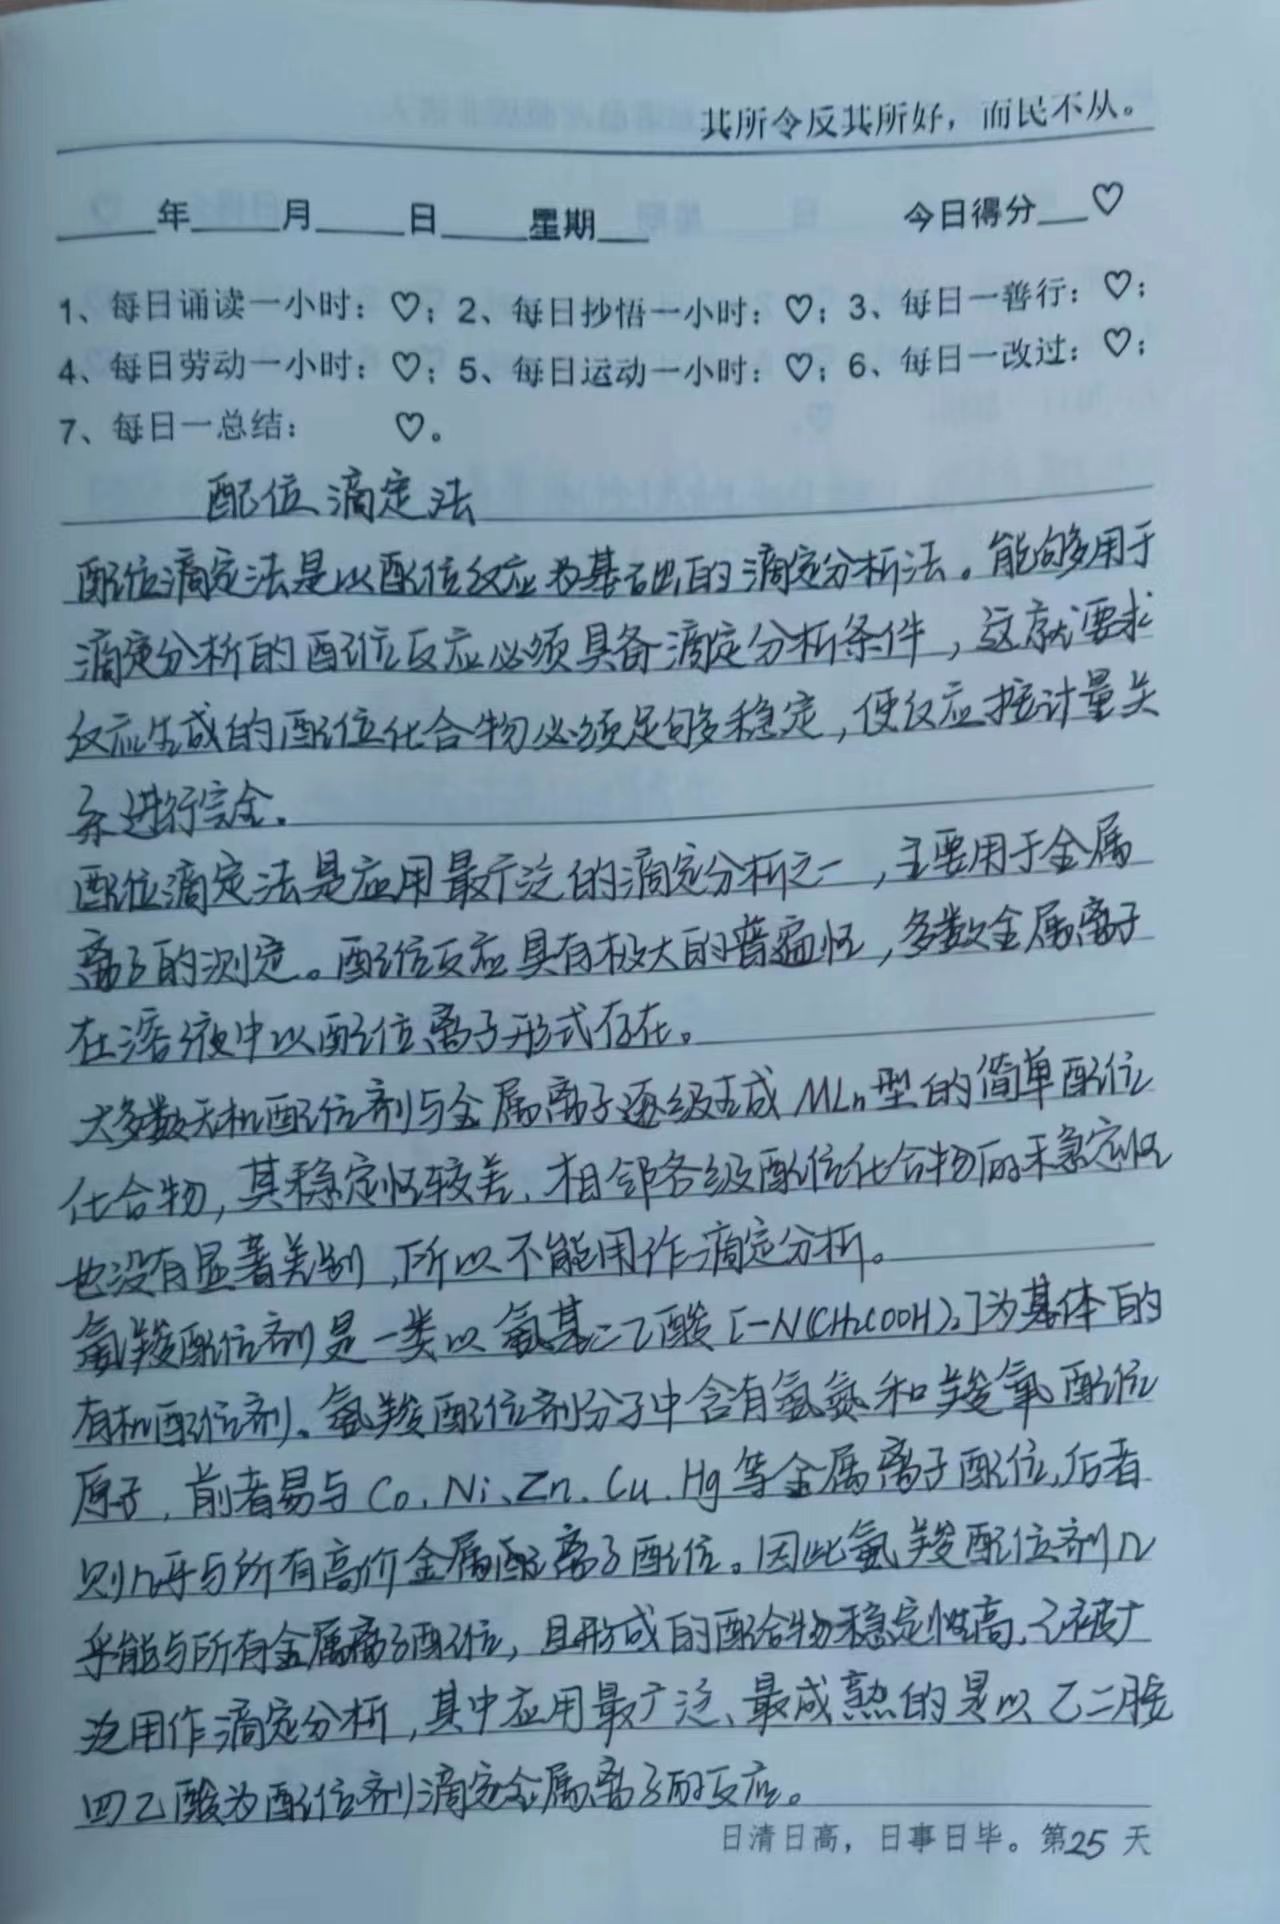 其所令反其所好，而民不从。
年 月 日 星期 今日得分 ♡
1、每日诵读一小时：♡；2、每日抄悟一小时：♡；3、每日一善行：♡；
4、每日劳动一小时：♡；5、每日运动一小时：♡；6、每日一改过：♡；
7、每日一总结： ♡。
配位滴定法
配位滴定法是以配位反应为基础的滴定分析法。能够用于
滴定分析的配位反应必须具备滴定分析条件，这就要求
反应生成的配位化合物必须足够稳定，使反应按计量关
系进行完全。
配位滴定法是应用最广泛的滴定分析之一，主要用于金属
离子的测定。配位反应具有极大的普遍性，多数金属离子
在溶液中以配位离子形式存在。
大多数无机配位剂与金属离子逐级生成MLn型的简单配位
化合物，其稳定性较差，相邻各级配位化合物的稳定性
也没有显著差别，所以不能用作滴定分析。
氨羧配位剂是一类以氨基二乙酸[-N(CH₂COOH)₂]为基体的
有机配位剂。氨羧配位剂分子中含有氨氮和羧氧配位
原子，前者易与Co、Ni、Zn、Cu、Hg等金属离子配位，后者
则几乎与所有高价金属配离子配位。因此氨羧配位剂几
乎能与所有金属离子配位，且形成的配合物稳定性高，已被广
泛用作滴定分析，其中应用最广泛、最成熟的是以乙二胺
四乙酸为配位剂滴定金属离子的反应。
日清日高，日事日毕。第25天